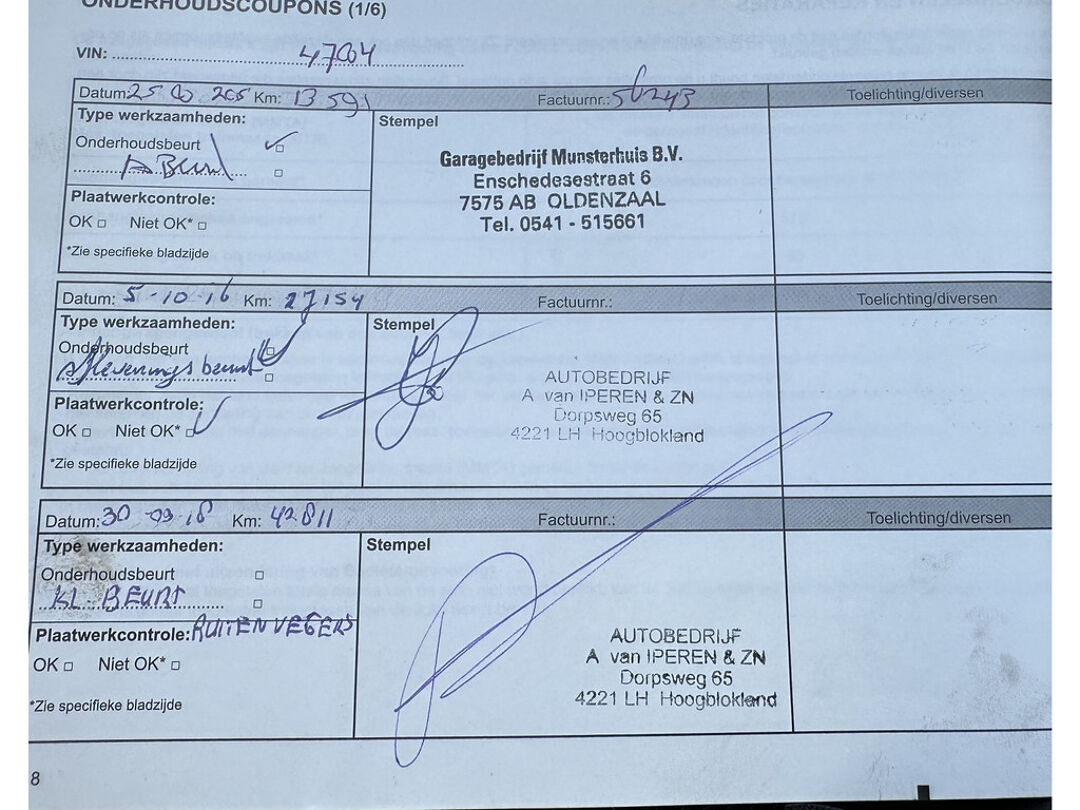 ONDERHOUDSCOUPONS (1/6)
VIN: 47004
Datum: Km: 13 591 Factuurnr.: 56243 Toelichting/diversen
Type werkzaamheden:
Stempel
Onderhoudsbeurt
A Beurt
Plaatwerkcontrole:
OK Niet OK*
*Zie specifieke bladzijde
Garagebedrijf Munsterhuis B.V.
Enschedesestraat 6
7575 AB OLDENZAAL
Tel. 0541 - 515661
Datum: 5-10-16 Km: 27154 Factuurnr.: Toelichting/diversen
Type werkzaamheden:
Stempel
Onderhoudsbeurt
Afleverings beurt
Plaatwerkcontrole:
OK Niet OK*
*Zie specifieke bladzijde
AUTOBEDRIJF
A van IPEREN & ZN
Dorpsweg 65
4221 LH Hoogblokland
Datum: 30-09-18 Km: 42811 Factuurnr.: Toelichting/diversen
Type werkzaamheden:
Stempel
Onderhoudsbeurt
KL. BEURT
Plaatwerkcontrole: RUITENVEGERS
OK Niet OK*
*Zie specifieke bladzijde
AUTOBEDRIJF
A van IPEREN & ZN
Dorpsweg 65
4221 LH Hoogblokland
8